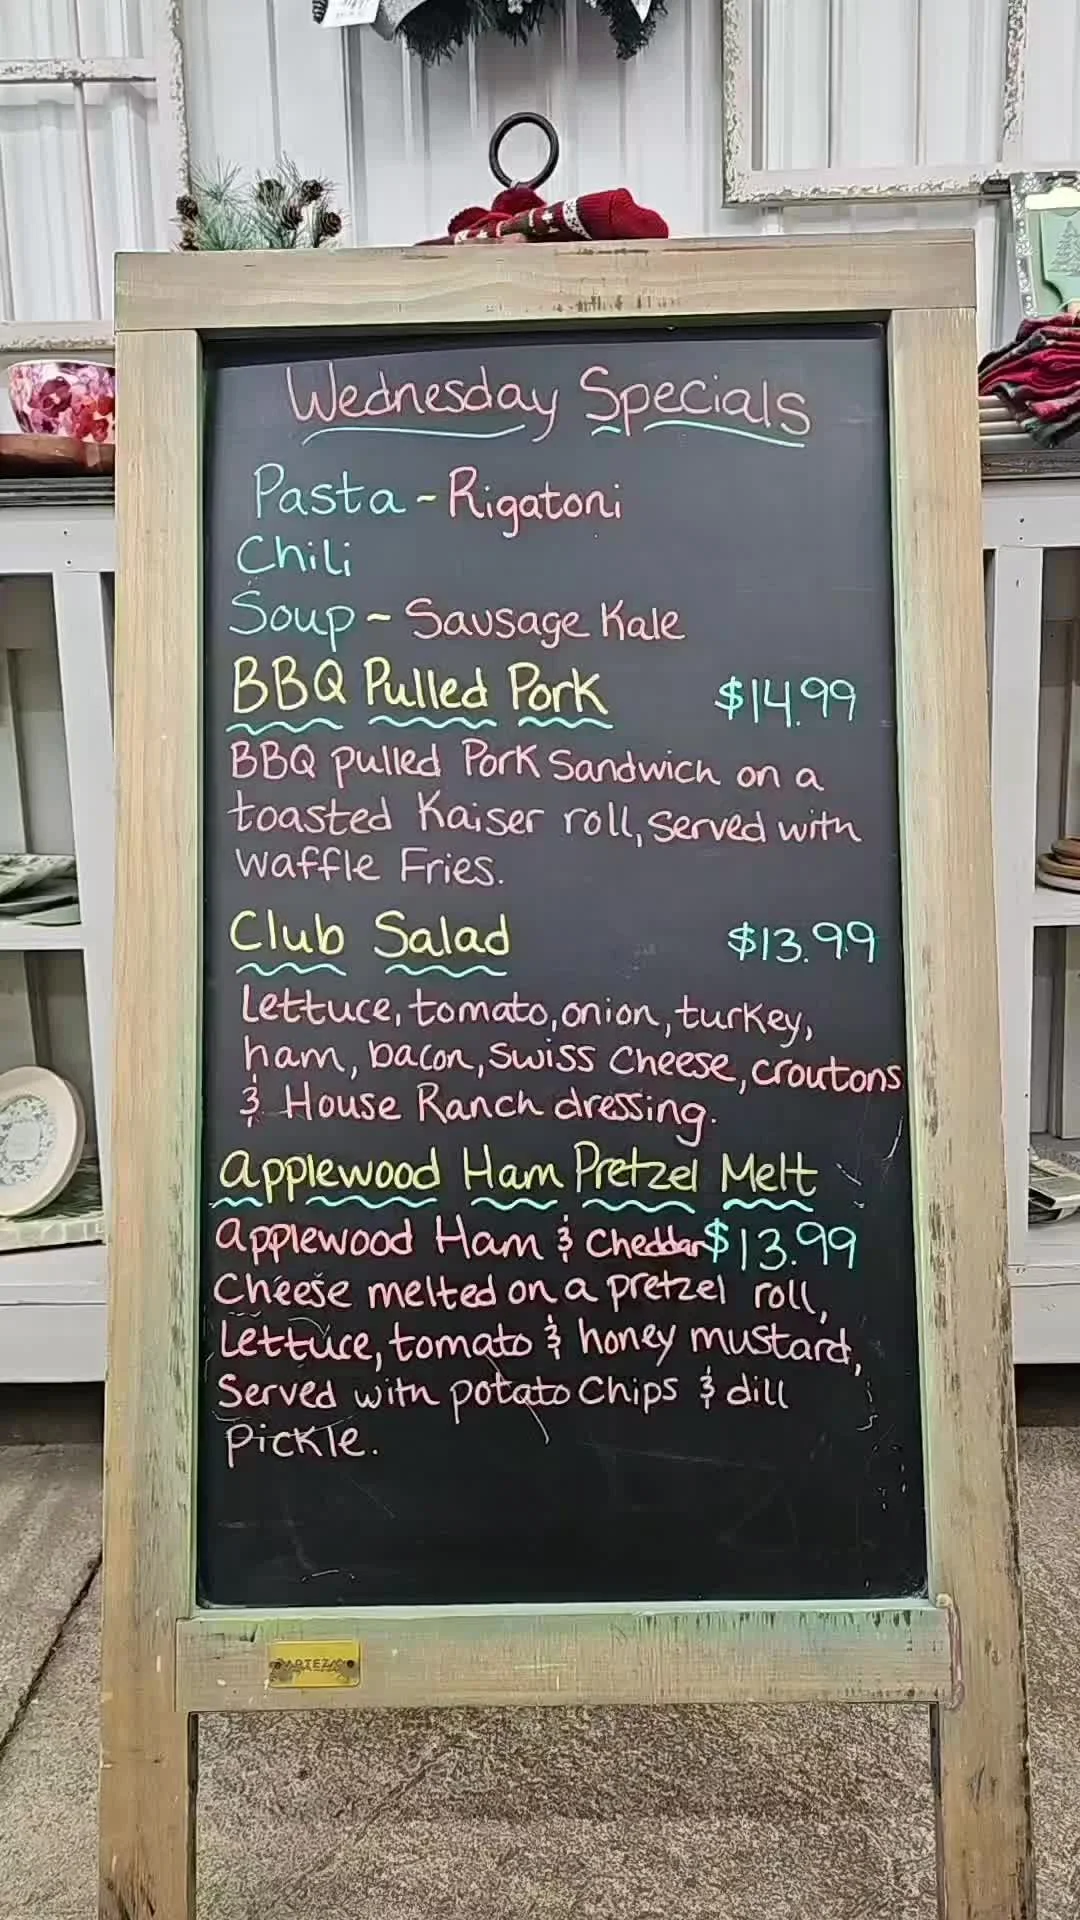 Wednesday Specials
Pasta ~ Rigatoni
Chili
Soup ~ Sausage Kale
BBQ Pulled Pork $14.99
BBQ pulled Pork Sandwich on a
toasted Kaiser roll, served with
waffle Fries.
Club Salad $13.99
Lettuce, tomato, onion, turkey,
ham, bacon, swiss cheese, croutons
& House Ranch dressing.
Applewood Ham Pretzel Melt
Applewood Ham & cheddar $13.99
Cheese melted on a pretzel roll,
Lettuce, tomato & honey mustard,
Served with potato chips & dill
pickle.
ARTEZA